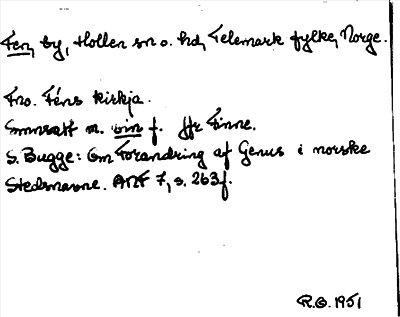 Fen, by, Hollen sn o. hd, Telemark fylke, Norge.
Fno. Féns kirkja.
Smnsatt m. vin f. Jfr Finne.
S. Bugge: Om Forandring af Genus i norske
Stedsnavne. ANF 7, s. 263f.
R.O. 1951